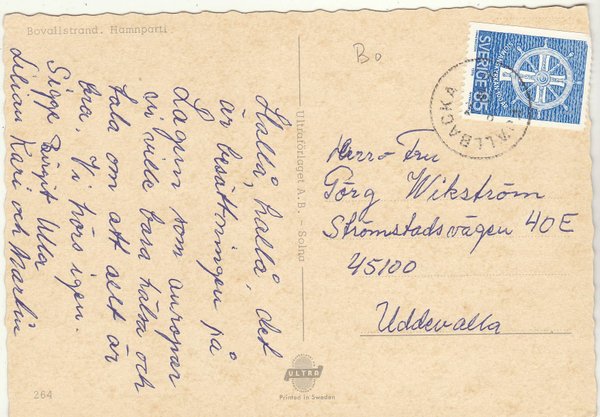 Bovallstrand. Hamnparti
Hallå, hallå, det
är besättningen på
Lagun som anropar
vi ville bara hälsa och
tala om att allt är
bra. Vi hörs igen.
Sigge Birgit Ulla
Lilian Kari och Martin
264
Ultraförlaget A.B - Solna
ULTRA
Printed in Sweden
Bo
SVERIGE 85
VALLBACKA
Herro Fru
Jörg Wikström
Strömstadsvägen 40E
45100
Uddevalla